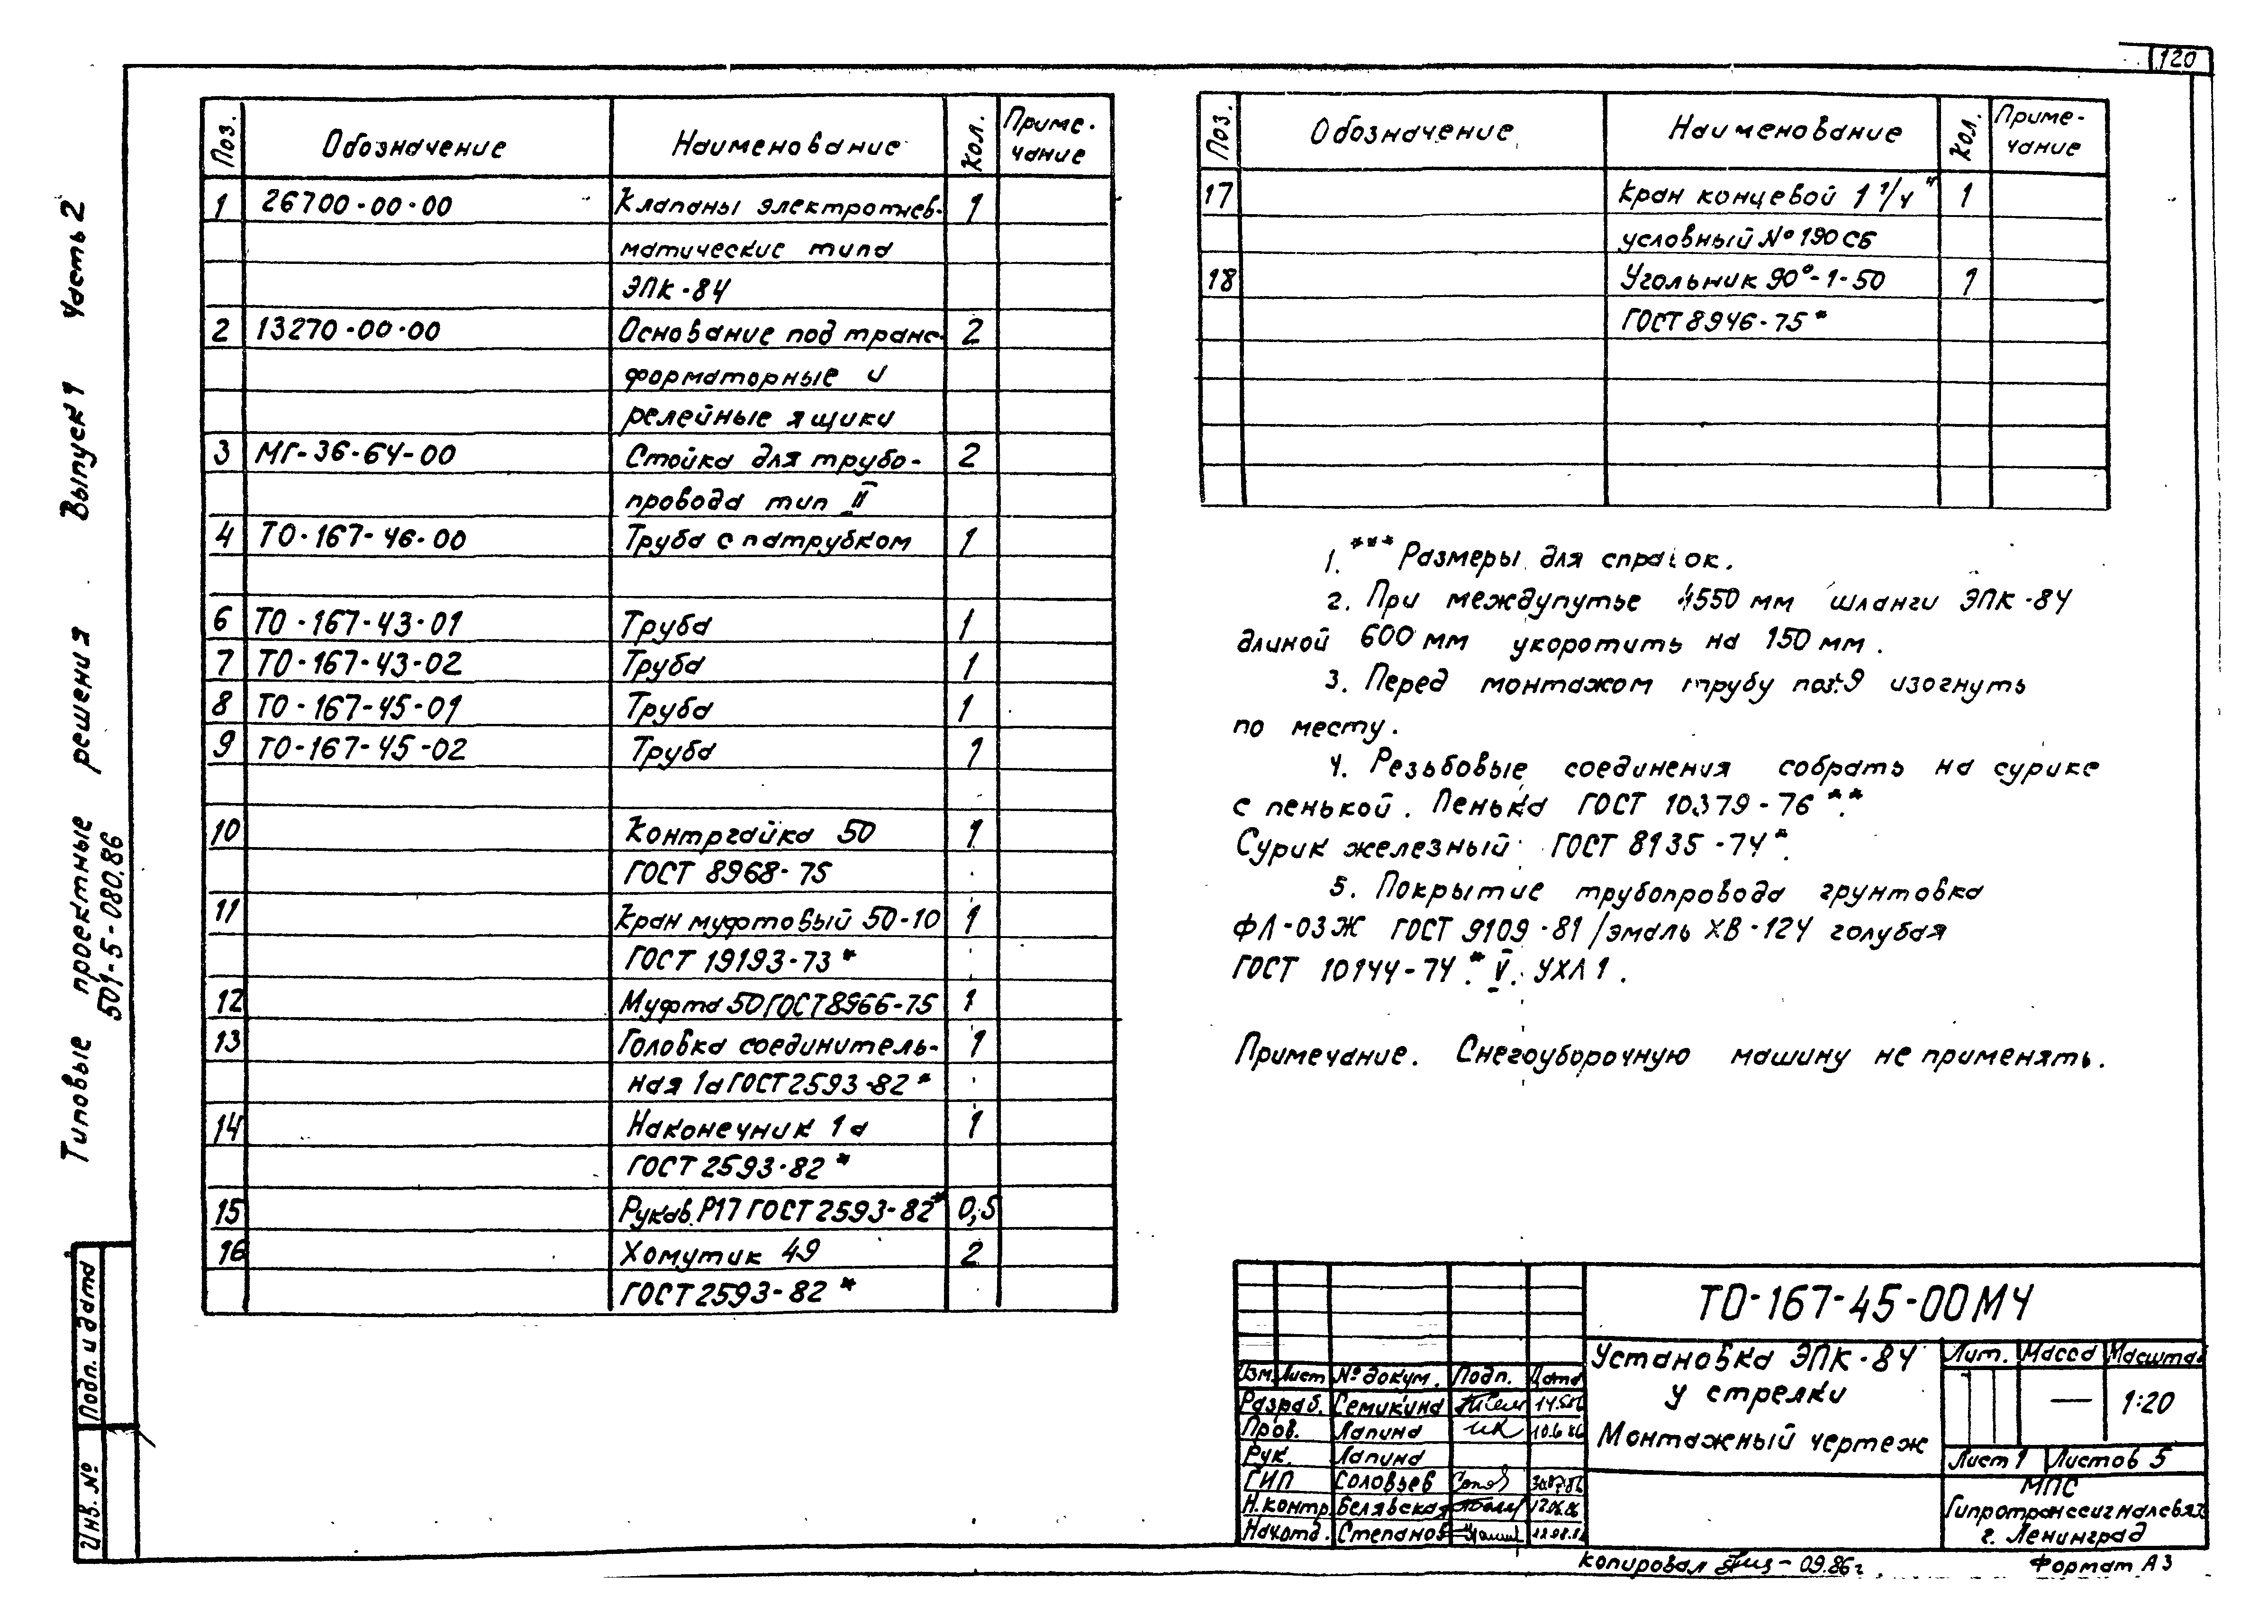 120
Типовые проектные решения Выпуск 1 Часть 2
501-5-080.86
Поз. Обозначение Наименование Кол. Приме-
чание
1 26700-00-00 Клапаны электропнев- 1
матические типа
ЭПК-84
2 13270-00-00 Основание под транс- 2
форматорные и
релейные ящики
3 МГ-36-64-00 Стойка для трубо- 2
провода тип II
4 ТО-167-46-00 Труба с патрубком 1
6 ТО-167-43-01 Труба 1
7 ТО-167-43-02 Труба 1
8 ТО-167-45-01 Труба 1
9 ТО-167-45-02 Труба 1
10 Контргайка 50 1
ГОСТ 8968-75
11 Кран муфтовый 50-10 1
ГОСТ 19193-73*
12 Муфта 50 ГОСТ 8966-75 1
13 Головка соединитель- 1
ная 1а ГОСТ 2593-82*
14 Наконечник 1а 1
ГОСТ 2593-82*
15 Рукав Р17 ГОСТ 2593-82* 0,5
16 Хомутик 49 2
ГОСТ 2593-82*
Поз. Обозначение Наименование Кол. Приме-
чание
17 Кран концевой 1 1/4" 1
условный № 190 СБ
18 Угольник 90°-1-50 1
ГОСТ 8946-75*
1. *** Размеры для справок.
2. При междупутье 4550 мм шланги ЭПК-84
длиной 600 мм укоротить на 150 мм.
3. Перед монтажом трубу поз. 9 изогнуть
по месту.
4. Резьбовые соединения собрать на сурике
с пенькой. Пенька ГОСТ 10379-76**.
Сурик железный ГОСТ 8135-74*.
5. Покрытие трубопровода грунтовка
ФЛ-03Ж ГОСТ 9109-81/эмаль ХВ-124 голубая
ГОСТ 10144-74*. V. УХЛ1.
Примечание. Снегоуборочную машину не применять.
ТО-167-45-00МЧ
Установка ЭПК-84
у стрелки
Монтажный чертеж
Лит. Масса Масштаб
— 1:20
Лист 1 Листов 5
МПС
Гипротранссигналсвязь
г. Ленинград
Изм. Лист № докум. Подп. Дата
Разраб. Семикина
Пров. Лапина 10.6.86
Рук. Лапина
ГИП Соловьев
Н.контр. Белявская 17.06.86
Нач.отд. Степанов
Подп. и дата
Инв. №
Копировал 09.86г. Формат А3